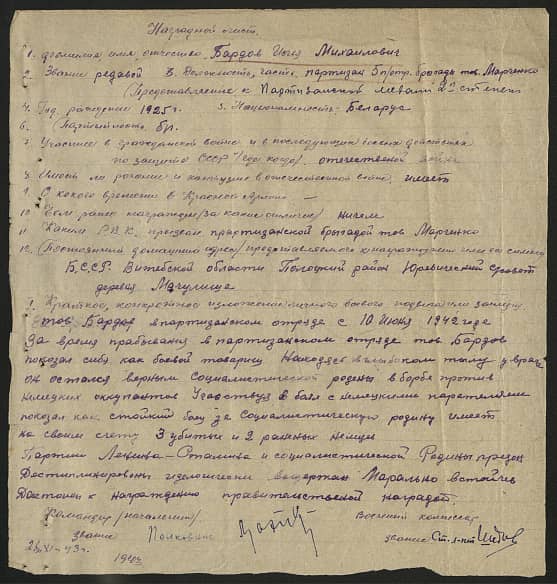 Наградной лист.
1. Фамилия имя, отчество Бардов Михаилович
2. Звание редовой 3. Должность, часть, партизан отр. бригады тов. Марченко
(Представление к Партизанской медали 2й степени
4. Год. рождение 1925 г. 5. Национальность: Беларус
6. Партийность б/п.
7. Участие в гражданской войне и в последующих боевых действиях
по защите СССР (где когда). отечественой войне
8. Имеет ли ранение и контузие в отечественной войне имеет
9. С какого времени в Красной армии —
10. Чем ранее награжден /за какие отличие/ ничем
11. Каким Р.В.К. призван партизанской бригадой тов Марченко
12. Постоянный домашний адрес/представляемого к награждению
Б.С.С.Р. Витебской области Полоцкий район Юревический с/совет
деревня Мачулище
1. Краткое, конкретное изложение личного боевого подвига или заслуг
тов Бардов в партизанском отряде с 10 июня 1942 года
За время прабывания в партизанском отряде тов Бардов
показал себя как боевой товарищ Находясь в глыбоком тылу у врага
он остался верным социалистической родены в борбе против
немецких оккупантов Участвуя в боях с немецкими
показал как стойкий боец за социалистическую родину имеет
на своем счету 3 убитых и 2 раненых немцев
Партии Ленина-Сталина и социалистической Родины предан
Морально
Достоин к награждению правительственой наградой.
Командир /начальник/ Военный комиссар
звание Полковник звание Ст. л-нт
XI-43 г.